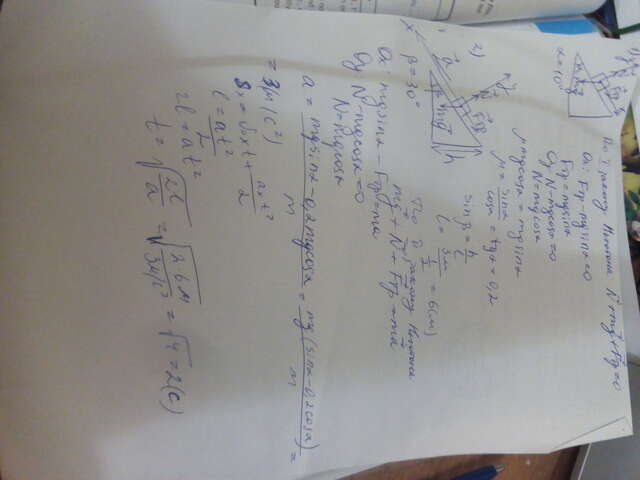 1)
По I закону Ньютона N + mg + Fтр = 0
α = 10°
Ox: Fтр - mg sinα = 0
Fтр = mg sinα
Oy: N - mg cosα = 0
N = mg cosα
μ mg cosα = mg sinα
μ = sinα / cosα = tgα = 0,2
2)
β = 30°
sinβ = h / l
l = 3м / ½ = 6(м)
По II закону Ньютона
mg + N + Fтр = ma
Ox: mg sinα - Fтр = ma
Oy: N - mg cosα = 0
N = mg cosα
a = mg sinα - 0,2 mg cosα / m = mg (sinα - 0,2 cosα) / m =
= 3м/(с²)
Sx = υx t + ax t² / 2
l = at² / 2
2l = at²
t = √2l / a = √2·6м / 3м/с² = √4 = 2(с)